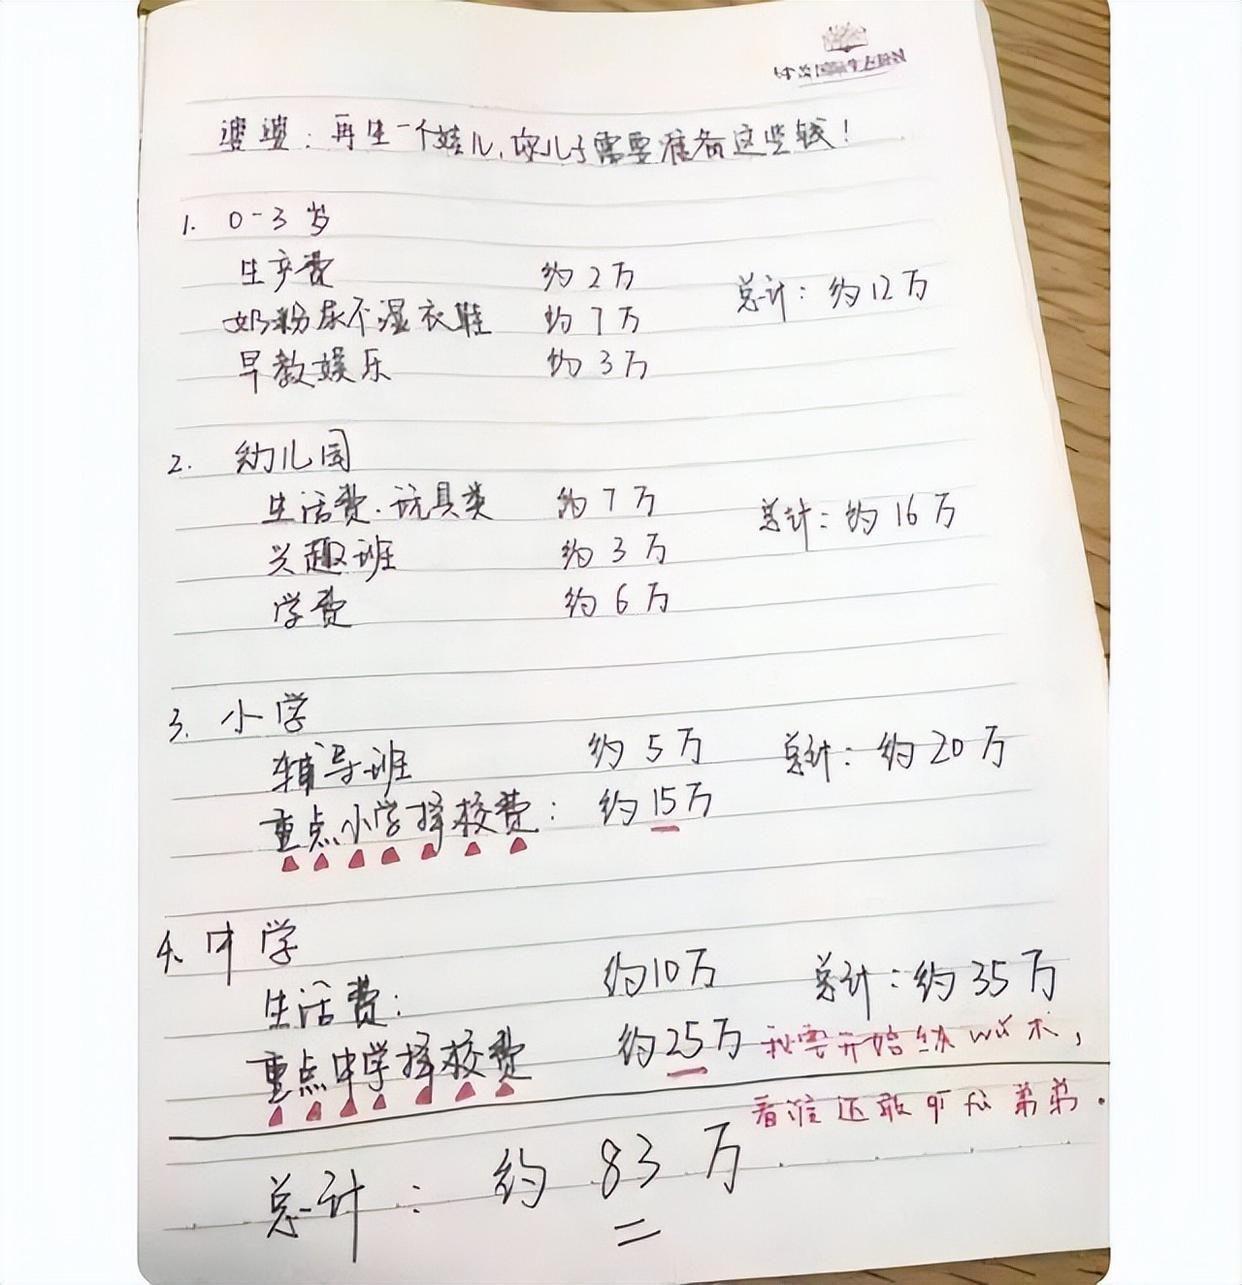 婆婆：再生一个娃儿，你儿子需要准备这些钱！
1. 0-3岁
生产费 约2万 总计：约12万
奶粉尿不湿衣鞋 约7万
早教娱乐 约3万
2. 幼儿园
生活费．玩具类 约7万 总计：约16万
兴趣班 约3万
学费 约6万
3. 小学
辅导班 约5万 总计：约20万
重点小学择校费：约15万
4、中学
生活费： 约10万 总计：约35万
重点中学择校费 约25万
我要开始练wǔ术，
看谁还敢 弟弟．
总计：约83万